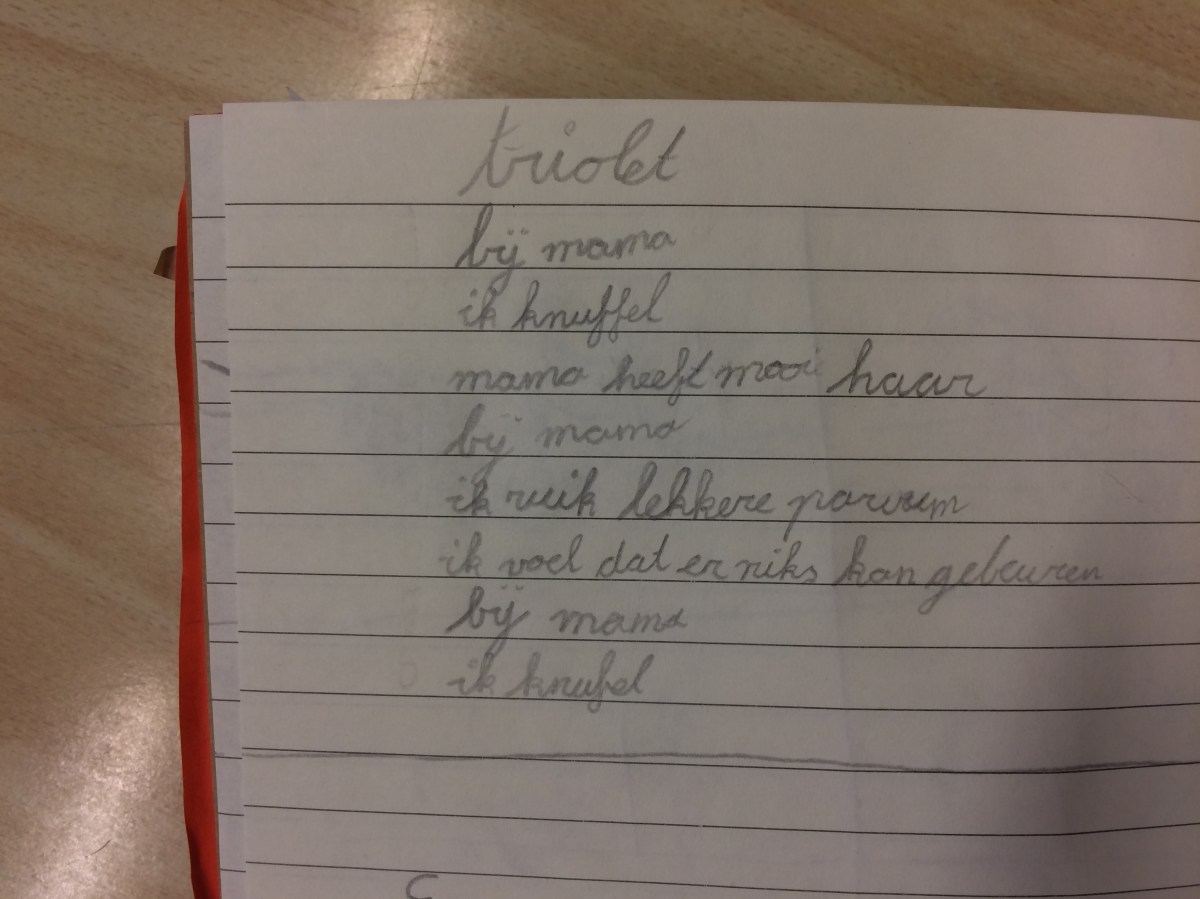 triolet
bij mama
ik knuffel
mama heeft mooi haar
bij mama
ik ruik lekkere parvum
ik voel dat er niks kan gebeuren
bij mama
ik knufel